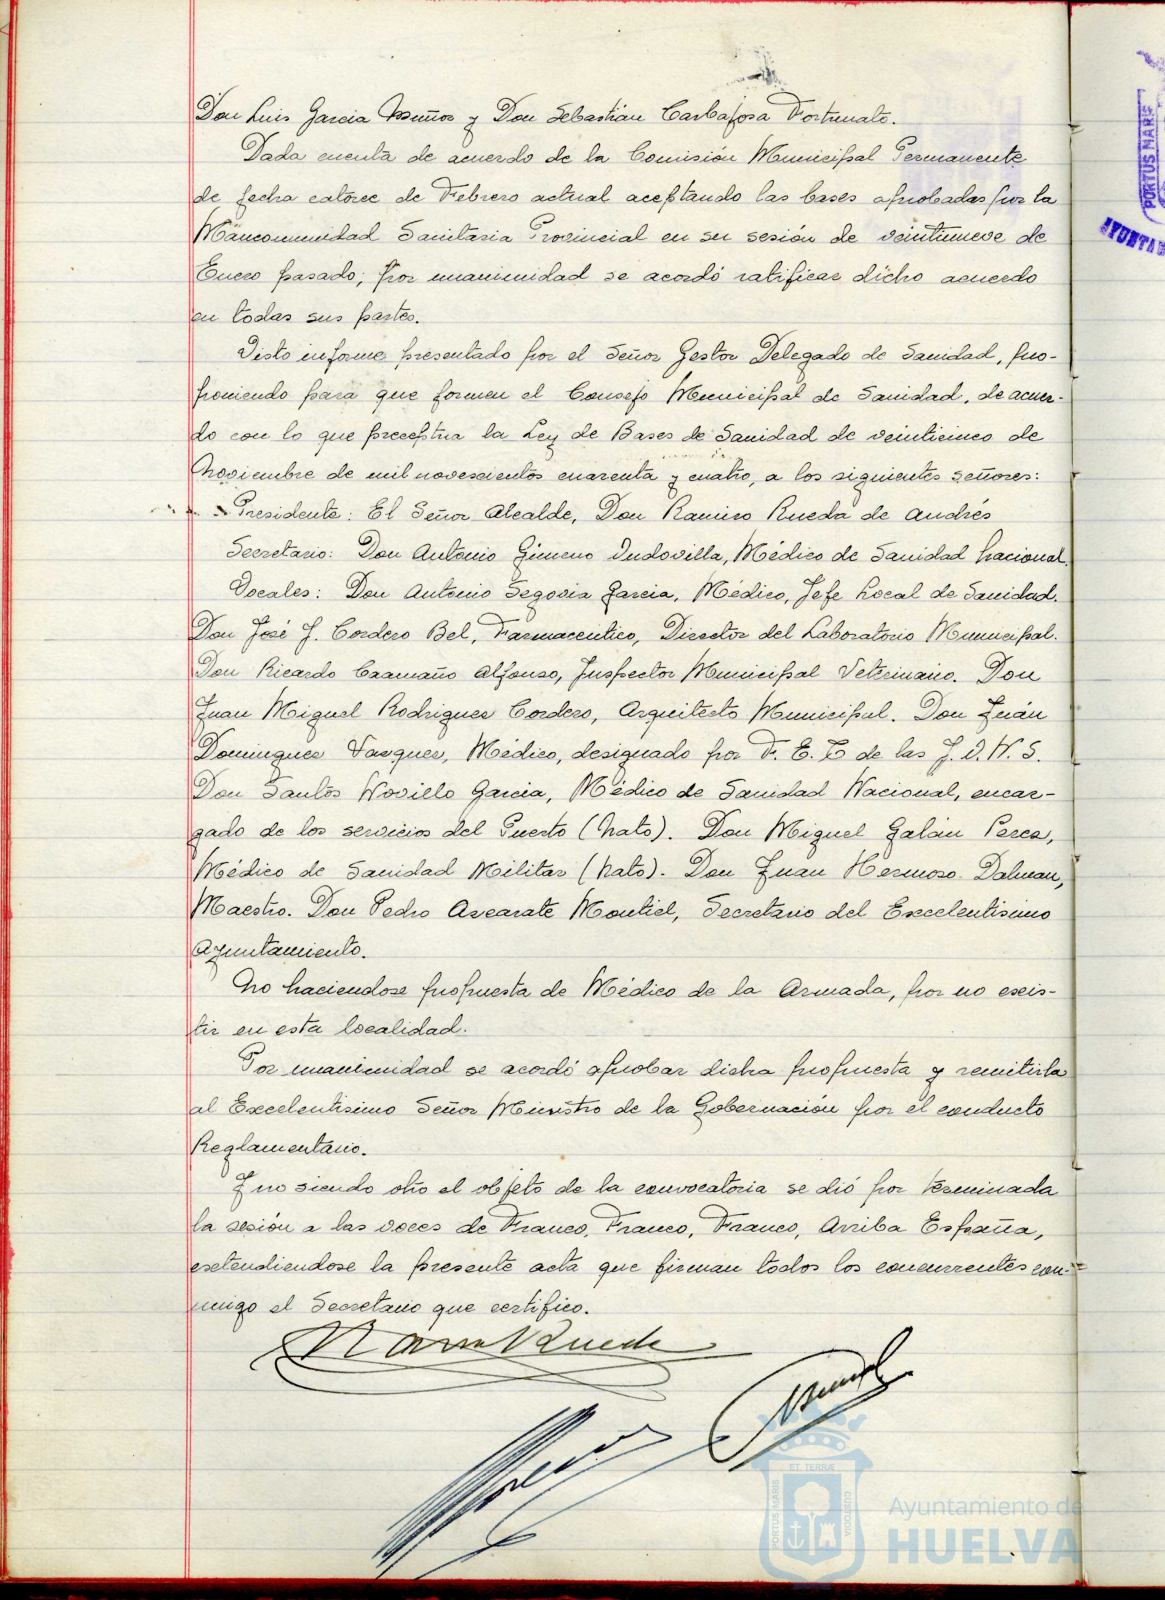 Don Luis Garcia Muñoz y Don Sebastián Carbajosa Fortunato.
Dada cuenta de acuerdo de la Comisión Municipal Permanente
de fecha catorce de Febrero actual aceptando las bases aprobadas por la
Mancomunidad Sanitaria Provincial en su sesión de veintinueve de
Enero pasado; por unanimidad se acordó ratificar dicho acuerdo
en todas sus partes.
Visto informe presentado por el Señor Gestor Delegado de Sanidad, pro-
poniendo para que formen el Consejo Municipal de Sanidad, de acuer-
do con lo que preceptua la Ley de Bases de Sanidad de veinticinco de
Noviembre de mil novescientos cuarenta y cuatro, a los siguientes señores:
Presidente: El Señor Alcalde, Don Ramiro Rueda de Andrés
Secretario: Don Antonio Gimeno Indovilla, Médico de Sanidad Nacional.
Vocales: Don Antonio Segovia Garcia, Médico, Jefe Local de Sanidad.
Don José J. Cordero Bel, Farmaceutico, Director del Laboratorio Municipal.
Don Ricardo Caamaño Alfonso, Inspector Municipal Veterinario. Don
Juan Miguel Rodriguez Cordero, Arquitecto Municipal. Don Juán
Dominguez Vazquez, Médico, designado por F. E. T de las J. O. N. S.
Don Santos Novillo Garcia, Médico de Sanidad Nacional, encar-
gado de los servicios del Puerto (Nato). Don Miguel Galán Perez,
Médico de Sanidad Militar (Nato). Don Juan Hermoso Dalman,
Maestro. Don Pedro Azcarate Montiel, Secretario del Excelentisimo
Ayuntamiento.
No haciendose propuesta de Médico de la Armada, por no exis-
tir en esta localidad.
Por unanimidad se acordó aprobar dicha propuesta y remitirla
al Excelentisimo Señor Ministro de la Gobernación por el conducto
Reglamentario.
Y no siendo otro el objeto de la convocatoria se dió por terminada
la sesión a las voces de Franco, Franco, Franco, Arriba España,
extendiendose la presente acta que firman todos los concurrentes con-
migo el Secretario que certifico.
PORTUS MARIS
Ayuntamiento de
HUELVA